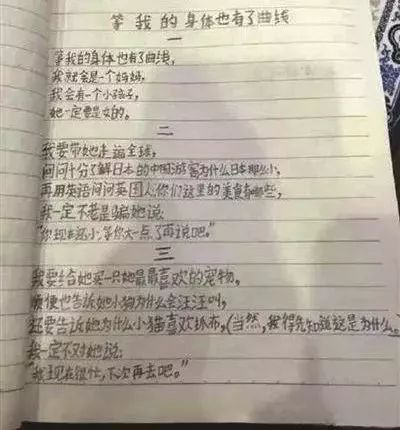 等我的身体也有了曲线
一
等我的身体也有了曲线,
我就会是一个妈妈,
我会有一个小孩子,
她一定要是女的。
二
我要带她走遍全球,
问问十分了解日本的中国游客为什么日本那么小,
再用英语问问英国人,你们这里的美食有哪些,
我一定不老是骗她说:
“你现在还小,等你大一点了再说吧。”
三
我要给她买一只她最最喜欢的宠物。
顺便也告诉她小狗为什么会汪汪叫,
还要告诉她为什么小猫喜欢抓布,(当然,我得先知道这是为什么。)
我一定不对她说:
“我现在很忙,下次再去吧。”